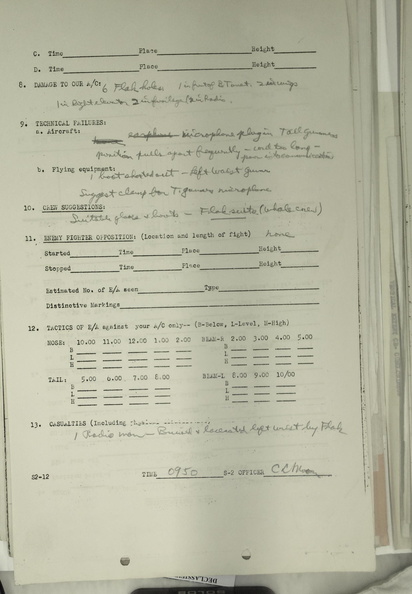 C. Time Place Height
D. Time Place Height
8. DAMAGE TO OUR A/C: 6 Flak holes 1 in front of B Turret. 2 in wings
1 in right elevator 2 in fuselage
9. TECHNICAL FAILURES:
a. Aircraft: microphone plug in Tail Gunners
position pulls apart frequently - cord too long -
b. Flying equipment:
1 boot shorted out - left waist gunner
Suggest clamp for T. gunners microphone
10. CREW SUGGESTIONS:
Flak suits (whole crew)
11. ENEMY FIGHTER OPPOSITION: (Location and length of fight) None
Started Time Place Height
Stopped Time Place Height
Estimated No. of E/A seen Type
Distinctive Markings
12. TACTICS OF E/A against your A/C only-- (B-Below, L-Level, H-High)
NOSE: 10.00 11.00 12.00 1.00 2.00 BEAM-R 2.00 3.00 4.00 5.00
B B
L L
H H
TAIL: 5.00 6.00 7.00 8.00 BEAM-L 8.00 9.00 10/00
B B
L L
H H
13. CASUALTIES (Including
1 Radio man - Bruised & lacerated left wrist by Flak
TIME 0950 S-2 OFFICER
S2-12